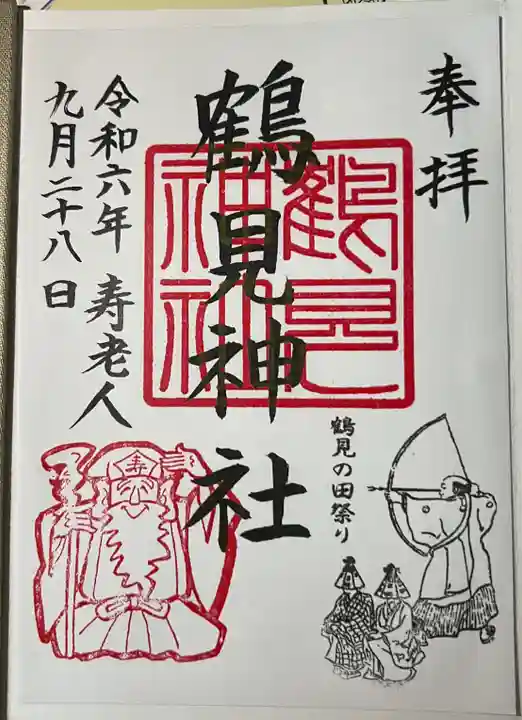 奉拝
鶴見神社
鶴見神社
寿老人
令和六年
九月二十八日
鶴見の田祭り
寿